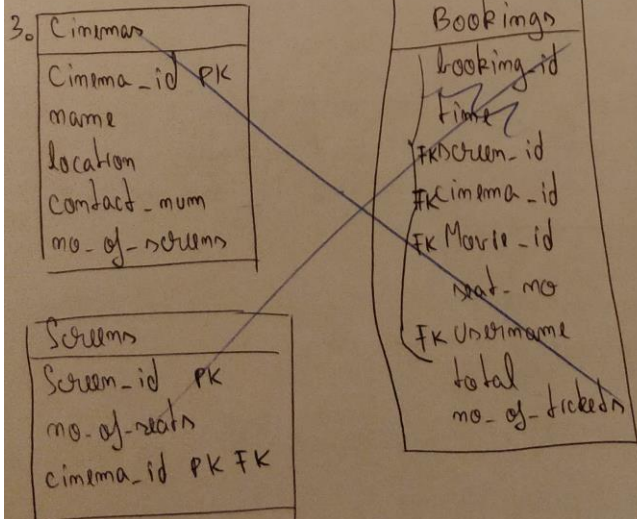 3.
Cinemas
Cinema_id PK
name
location
contact_num
no_of_screens
Screens
Screen_id PK
no_of_seats
cinema_id PK FK
Bookings
booking_id
time
FK screen_id
FK cinema_id
FK Movie_id
seat_no
FK Username
total
no_of_tickets